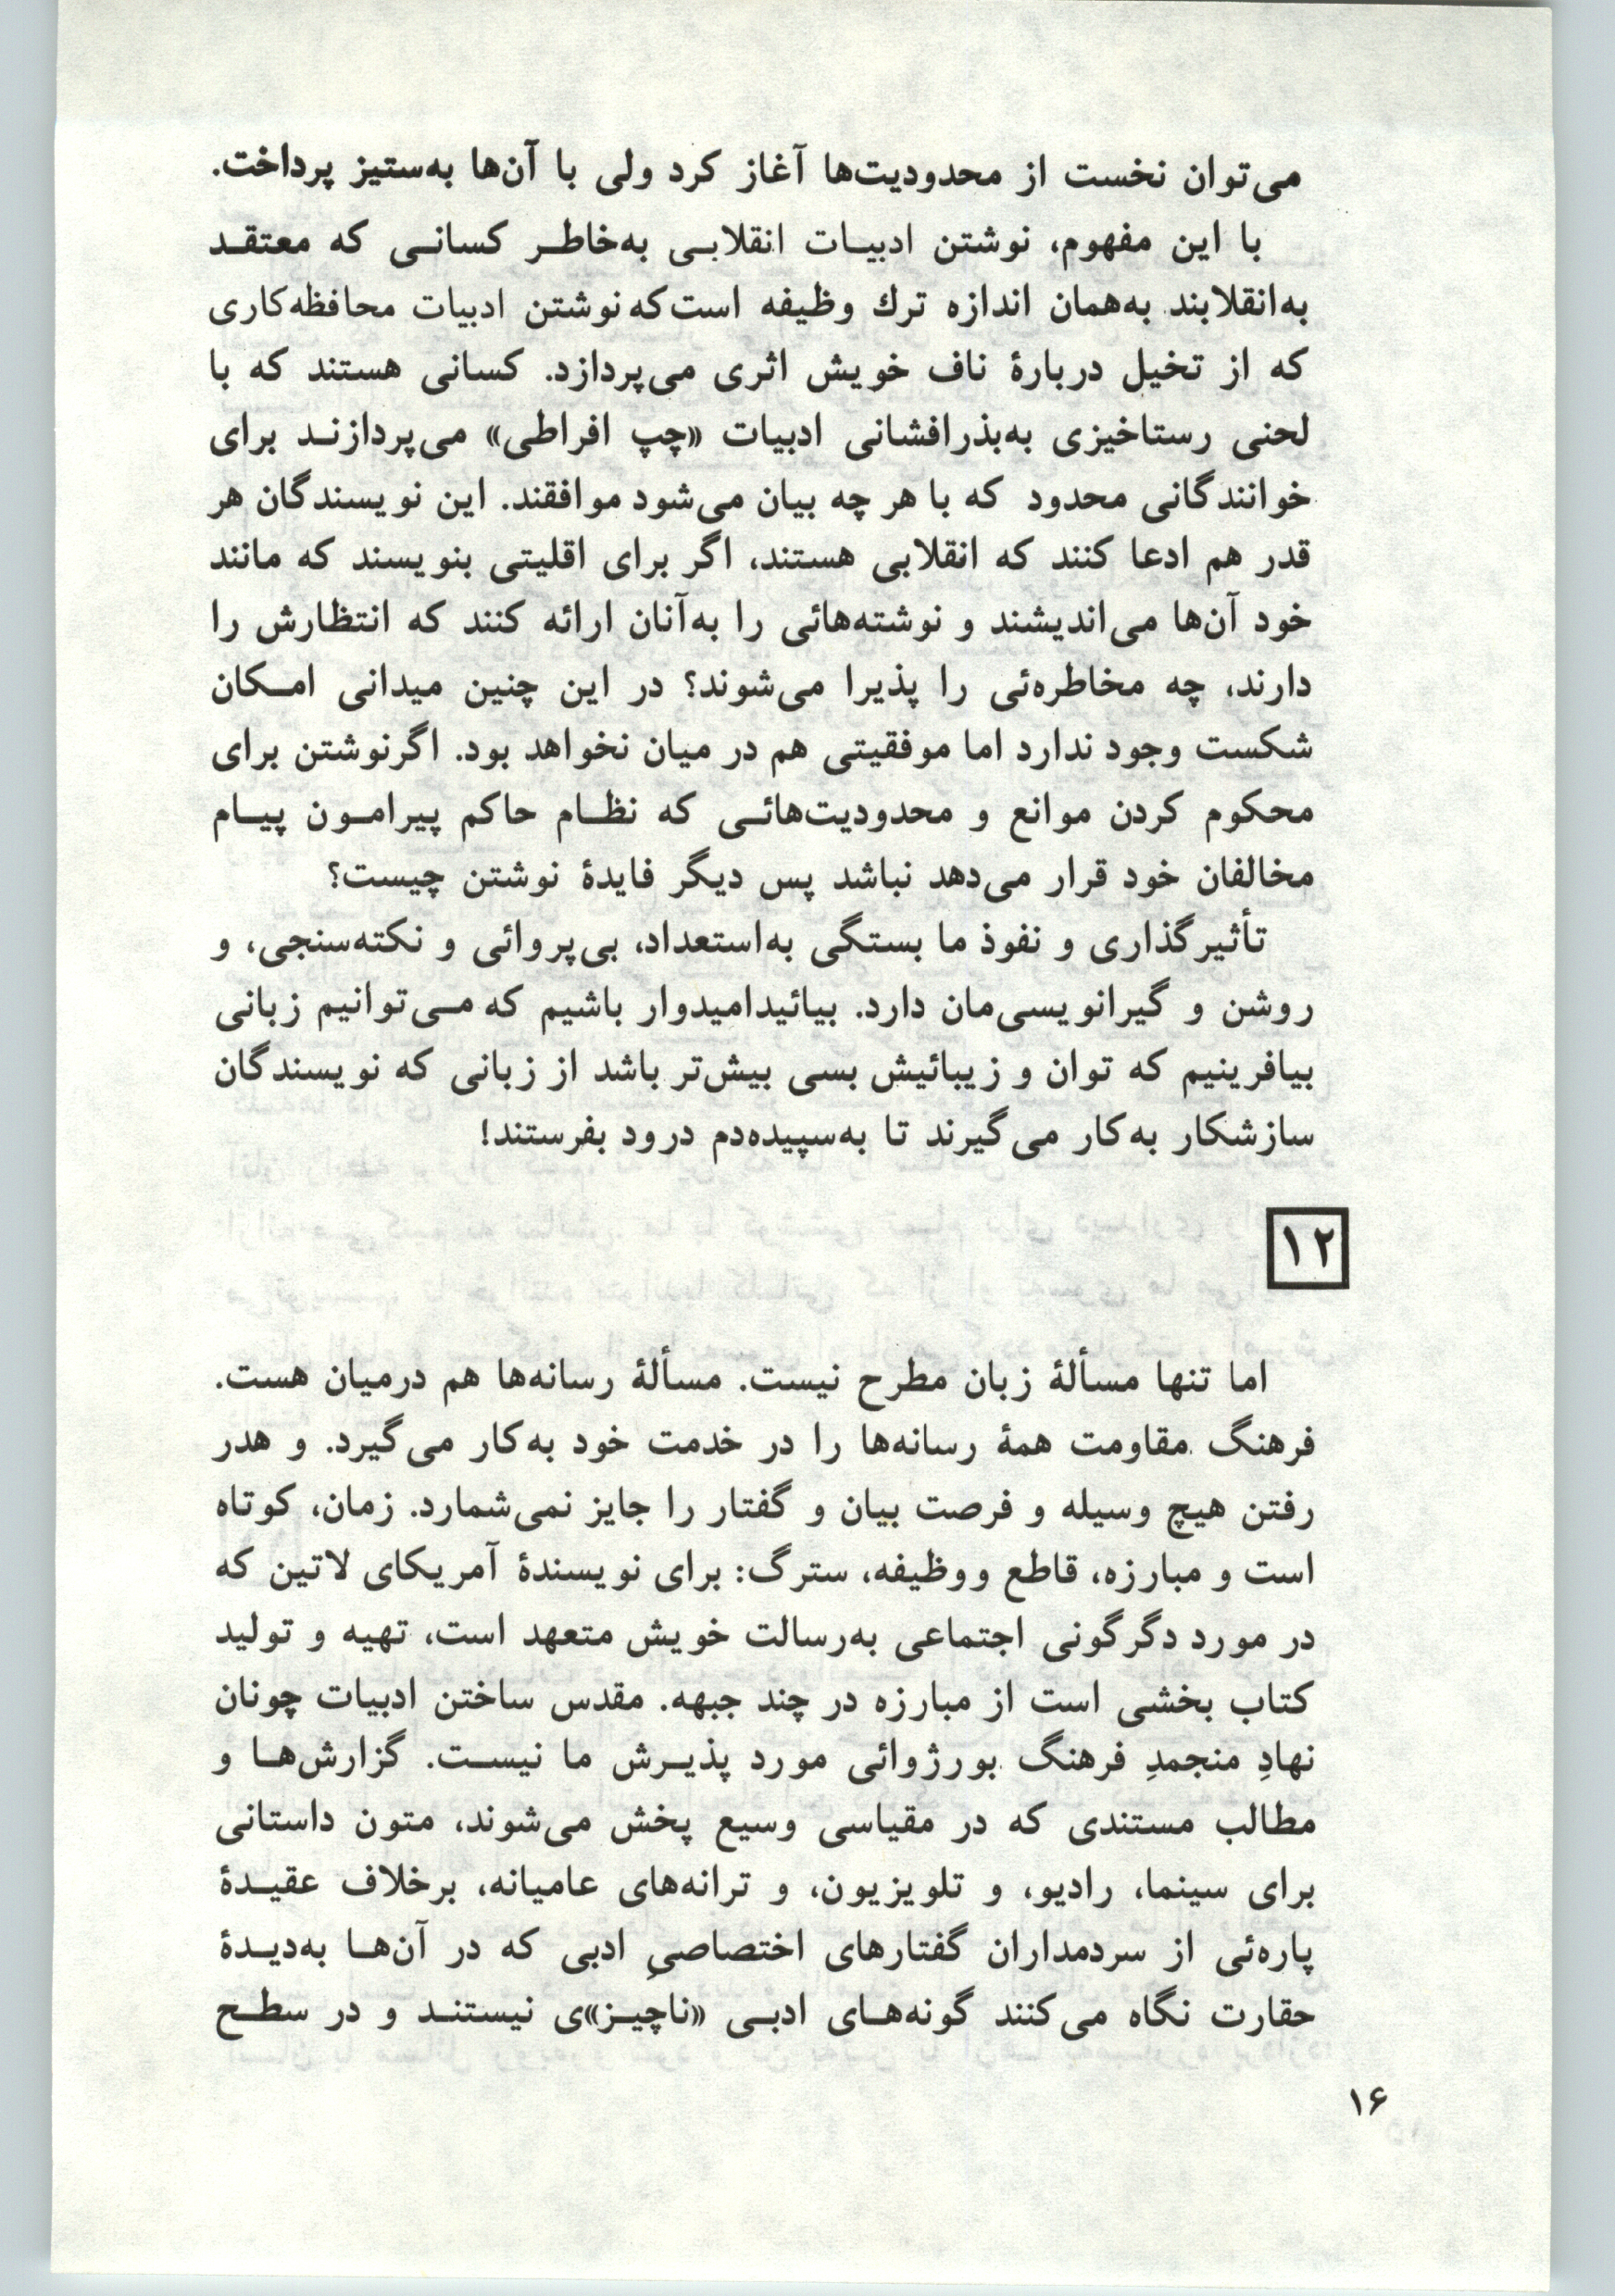 می‌توان نخست از محدودیت‌ها آغاز کرد ولی با آن‌ها به‌ستیز پرداخت.
با این مفهوم، نوشتن ادبیات انقلابی به‌خاطر کسانی که معتقد
به‌انقلابند به‌همان اندازه ترك وظیفه است‌که نوشتن ادبیات محافظه‌کاری
که از تخیل دربارهٔ ناف خویش اثری می‌پردازد. کسانی هستند که با
لحنی رستاخیزی به‌بذرافشانی ادبیات «چپ افراطی» می‌پردازند برای
خوانندگانی محدود که با هر چه بیان می‌شود موافقند. این نویسندگان هر
قدر هم ادعا کنند که انقلابی هستند، اگر برای اقلیتی بنویسند که مانند
خود آن‌ها می‌اندیشند و نوشته‌هائی را به‌آنان ارائه کنند که انتظارش را
دارند، چه مخاطره‌ئی را پذیرا می‌شوند؟ در این چنین میدانی امکان
شکست وجود ندارد اما موفقیتی هم در میان نخواهد بود. اگرنوشتن برای
محکوم کردن موانع و محدودیت‌هائی که نظام حاکم پیرامون پیام
مخالفان خود قرار می‌دهد نباشد پس دیگر فایدهٔ نوشتن چیست؟
تأثیرگذاری و نفوذ ما بستگی به‌استعداد، بی‌پروائی و نکته‌سنجی، و
روشن و گیرانویسی‌مان دارد. بیائیدامیدوار باشیم که می‌توانیم زبانی
بیافرینیم که توان و زیبائیش بسی بیش‌تر باشد از زبانی که نویسندگان
سازشکار به‌کار می‌گیرند تا به‌سپیده‌دم درود بفرستند!
۱۲
اما تنها مسألهٔ زبان مطرح نیست. مسألهٔ رسانه‌ها هم درمیان هست.
فرهنگ مقاومت همهٔ رسانه‌ها را در خدمت خود به‌کار می‌گیرد. و هدر
رفتن هیچ وسیله و فرصت بیان و گفتار را جایز نمی‌شمارد. زمان، کوتاه
است و مبارزه، قاطع ووظیفه، سترگ: برای نویسندهٔ آمریکای لاتین که
در مورد دگرگونی اجتماعی به‌رسالت خویش متعهد است، تهیه و تولید
کتاب بخشی است از مبارزه در چند جبهه. مقدس ساختن ادبیات چونان
نهادِ منجمدِ فرهنگ بورژوائی مورد پذیرش ما نیست. گزارش‌ها و
مطالب مستندی که در مقیاسی وسیع پخش می‌شوند، متون داستانی
برای سینما، رادیو، و تلویزیون، و ترانه‌های عامیانه، برخلاف عقیدهٔ
پاره‌ئی از سردمداران گفتارهای اختصاصیِ ادبی که در آن‌ها به‌دیدهٔ
حقارت نگاه می‌کنند گونه‌های ادبی «ناچیز»ی نیستند و در سطح
۱۶